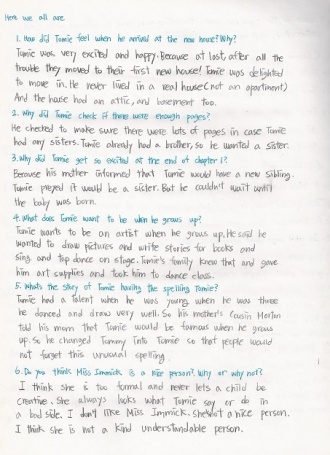 Here we all are
1. How did Tomie feel when he arrived at the new house? Why?
Tomie was very excited and happy. Because at last, after all the
trouble they moved to their first new house! Tomie was delighted
to move in. He never lived in a real house (not an apartment)
And the house had an attic, and basement too.
2. Why did Tomie check if there were enough pages?
He checked to make sure there were lots of pages in case Tomie
had any sisters. Tomie already had a brother, so he wanted a sister.
3. Why did Tomie get so excited at the end of chapter 1?
Because his mother informed that Tomie would have a new sibling.
Tomie prayed it would be a sister. But he couldn't wait until
the baby was born.
4. What does Tomie want to be when he grows up?
Tomie wants to be an artist when he grows up. He said he
wanted to draw pictures and write stories for books and
sing and tap dance on stage. Tomie's family knew that and gave
him art supplies and took him to dance class.
5. What's the story of Tomie having the spelling Tomie?
Tomie had a talent when he was young, when he was three
he danced and drew very well. So his mother's cousin Morton
told his mom that Tomie would be famous when he grows
up. So he changed Tommy into Tomie so that people would
not forget this unusual spelling.
6. Do you think Miss Immick is a nice person? Why or why not?
I think she is too formal and never lets a child be
creative. She always looks what Tomie say or do in
a bad side. I don't like Miss Immick. She's not a nice person.
I think she is not a kind understandable person.